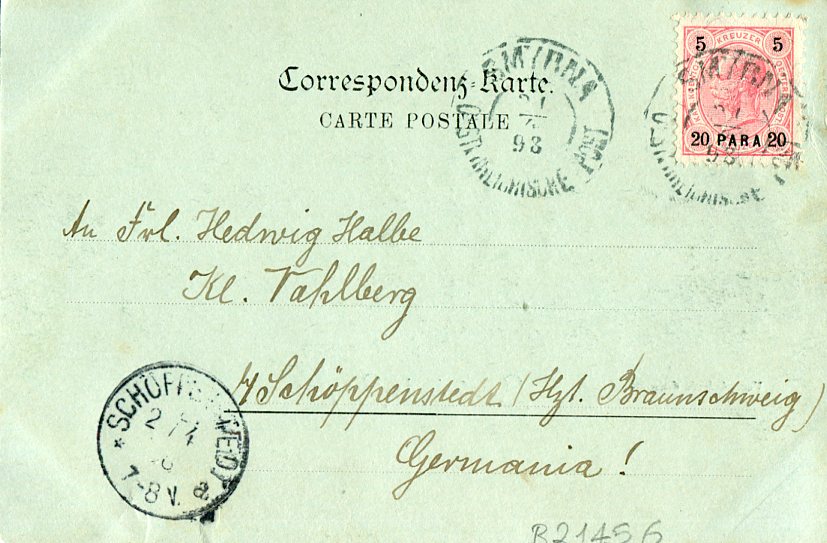 Correspondenz-Karte.
CARTE POSTALE
SMIRNA
98
OESTERREICHISCHE POST
5 KREUZER 5
20 PARA 20
An Frl. Hedwig Halbe
Kl. Vahlberg
b/Schöppenstedt (Hzt. Braunschweig)
Germania!
SCHÖPPENSTEDT
7-8 V. a
B21456